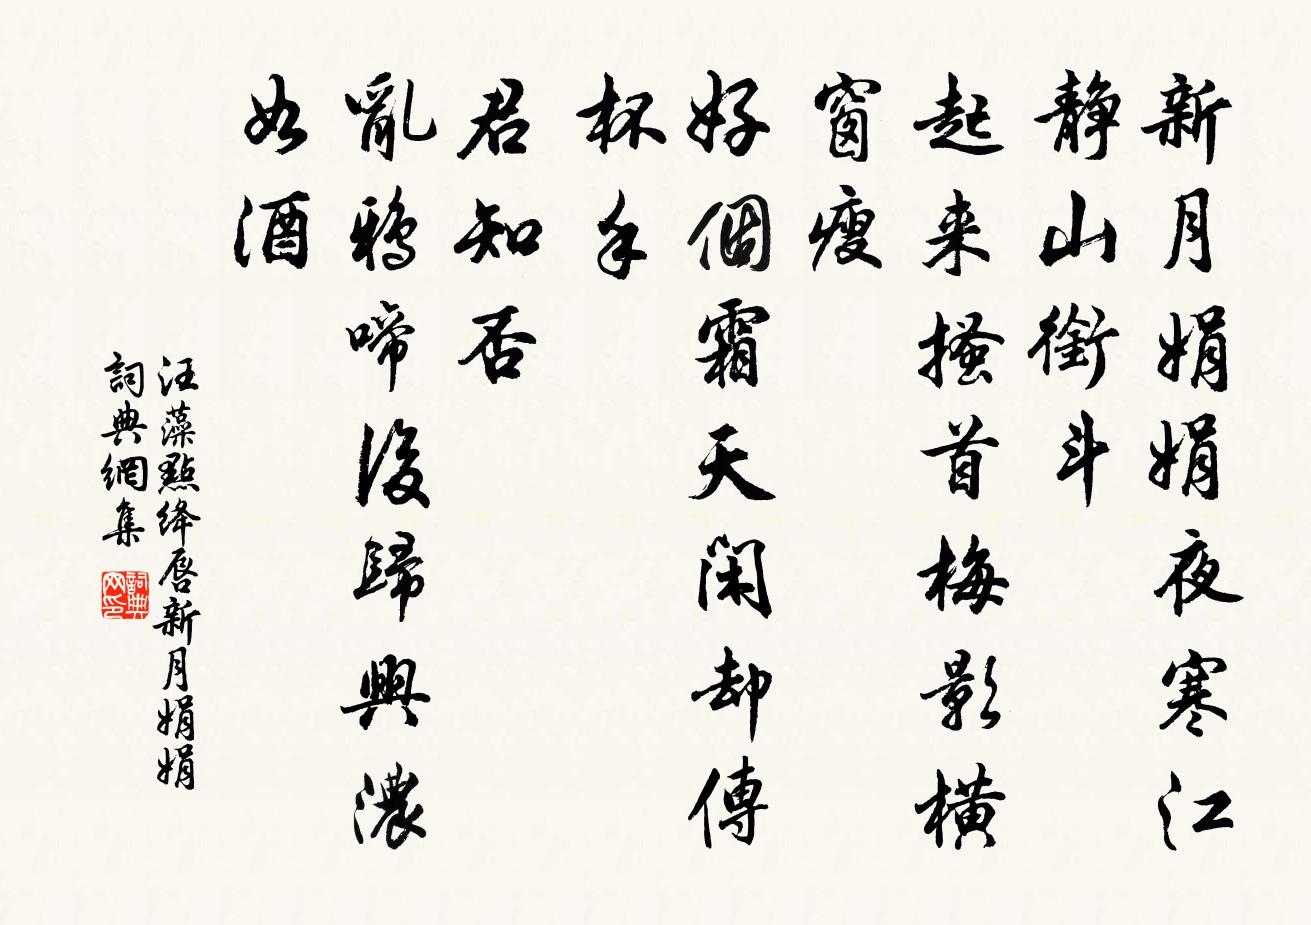 新月娟娟夜寒江
靜山銜斗
起来搔首梅影橫
窗瘦
好個霜天閑却傳
杯手
君知否
亂鴉啼後歸興濃
如酒
汪藻點絳唇新月娟娟
詞典網集
詞典网印